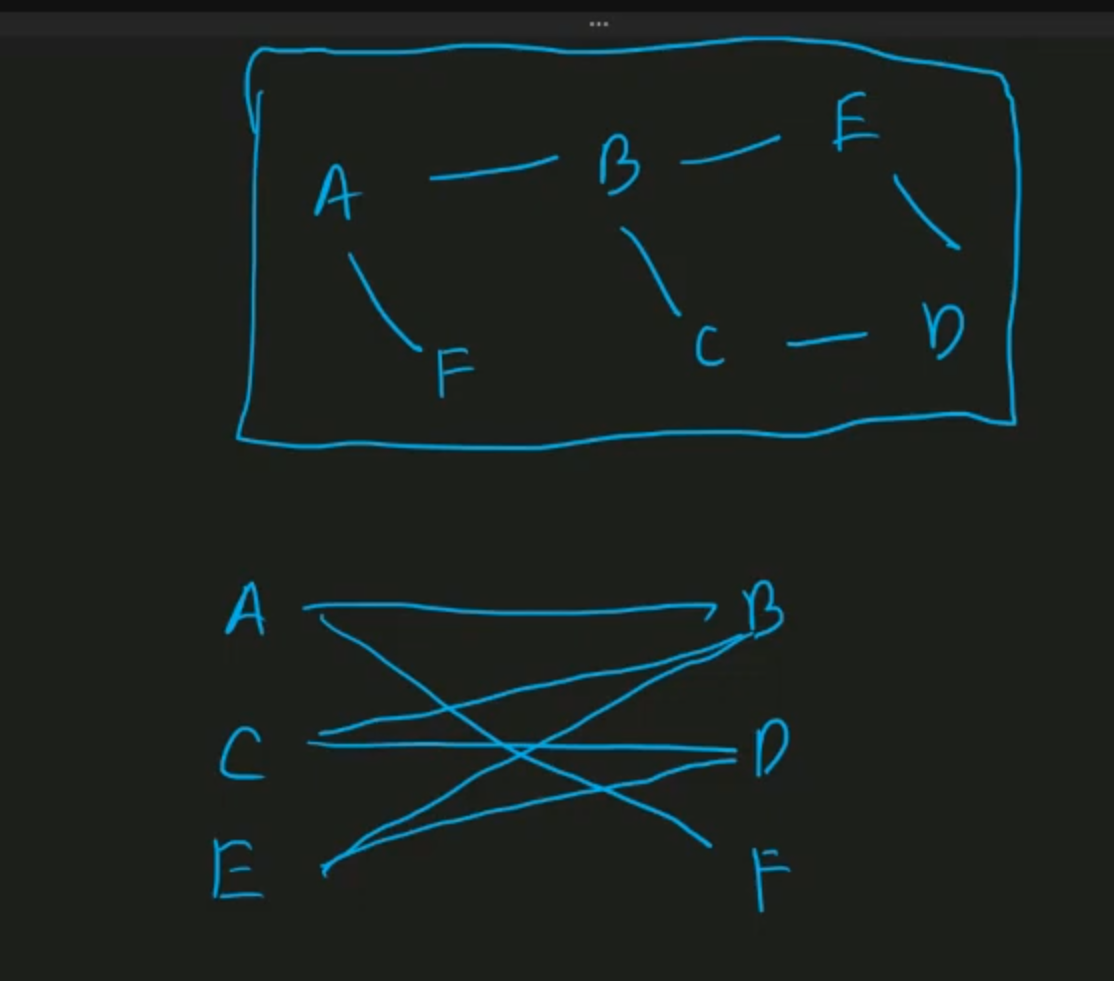 A B E
F C D
A B
C D
E F